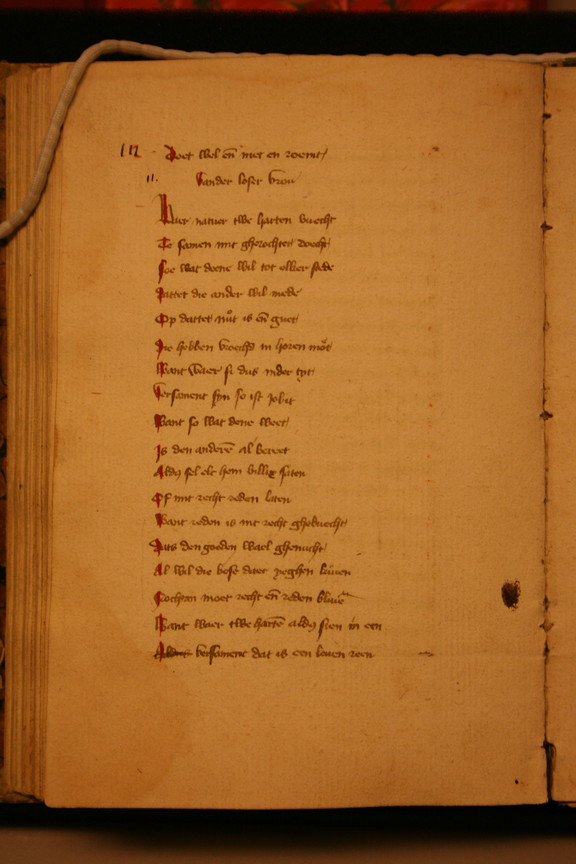 112 · Doet wel en̄ niet en roemt
11. Vander loser vrou
Waer natuer twe harten vuecht
Te samen mit gherechter doecht
Soe wat deene wil tot elker stede
Dattet die ander wil mede
Op dattet nut is en̄ guet
Die hebben vroechs in horen moet
Want waer si dus indes tyt
Versament syn so ist jolijt
Want so wat dene weet
Is den anderē al bereet
Aldus sel elc hem billix saten
Of mit recht reden laten
Want reden is mit recht ghebuecht
Dats den goeden wael ghenuecht
Al wil die bose daer jeghen kiuen
Nochtan moet recht en̄ reden bliuē
Want waer twe hartē aldus sien in een
versament dat is een leuen reen